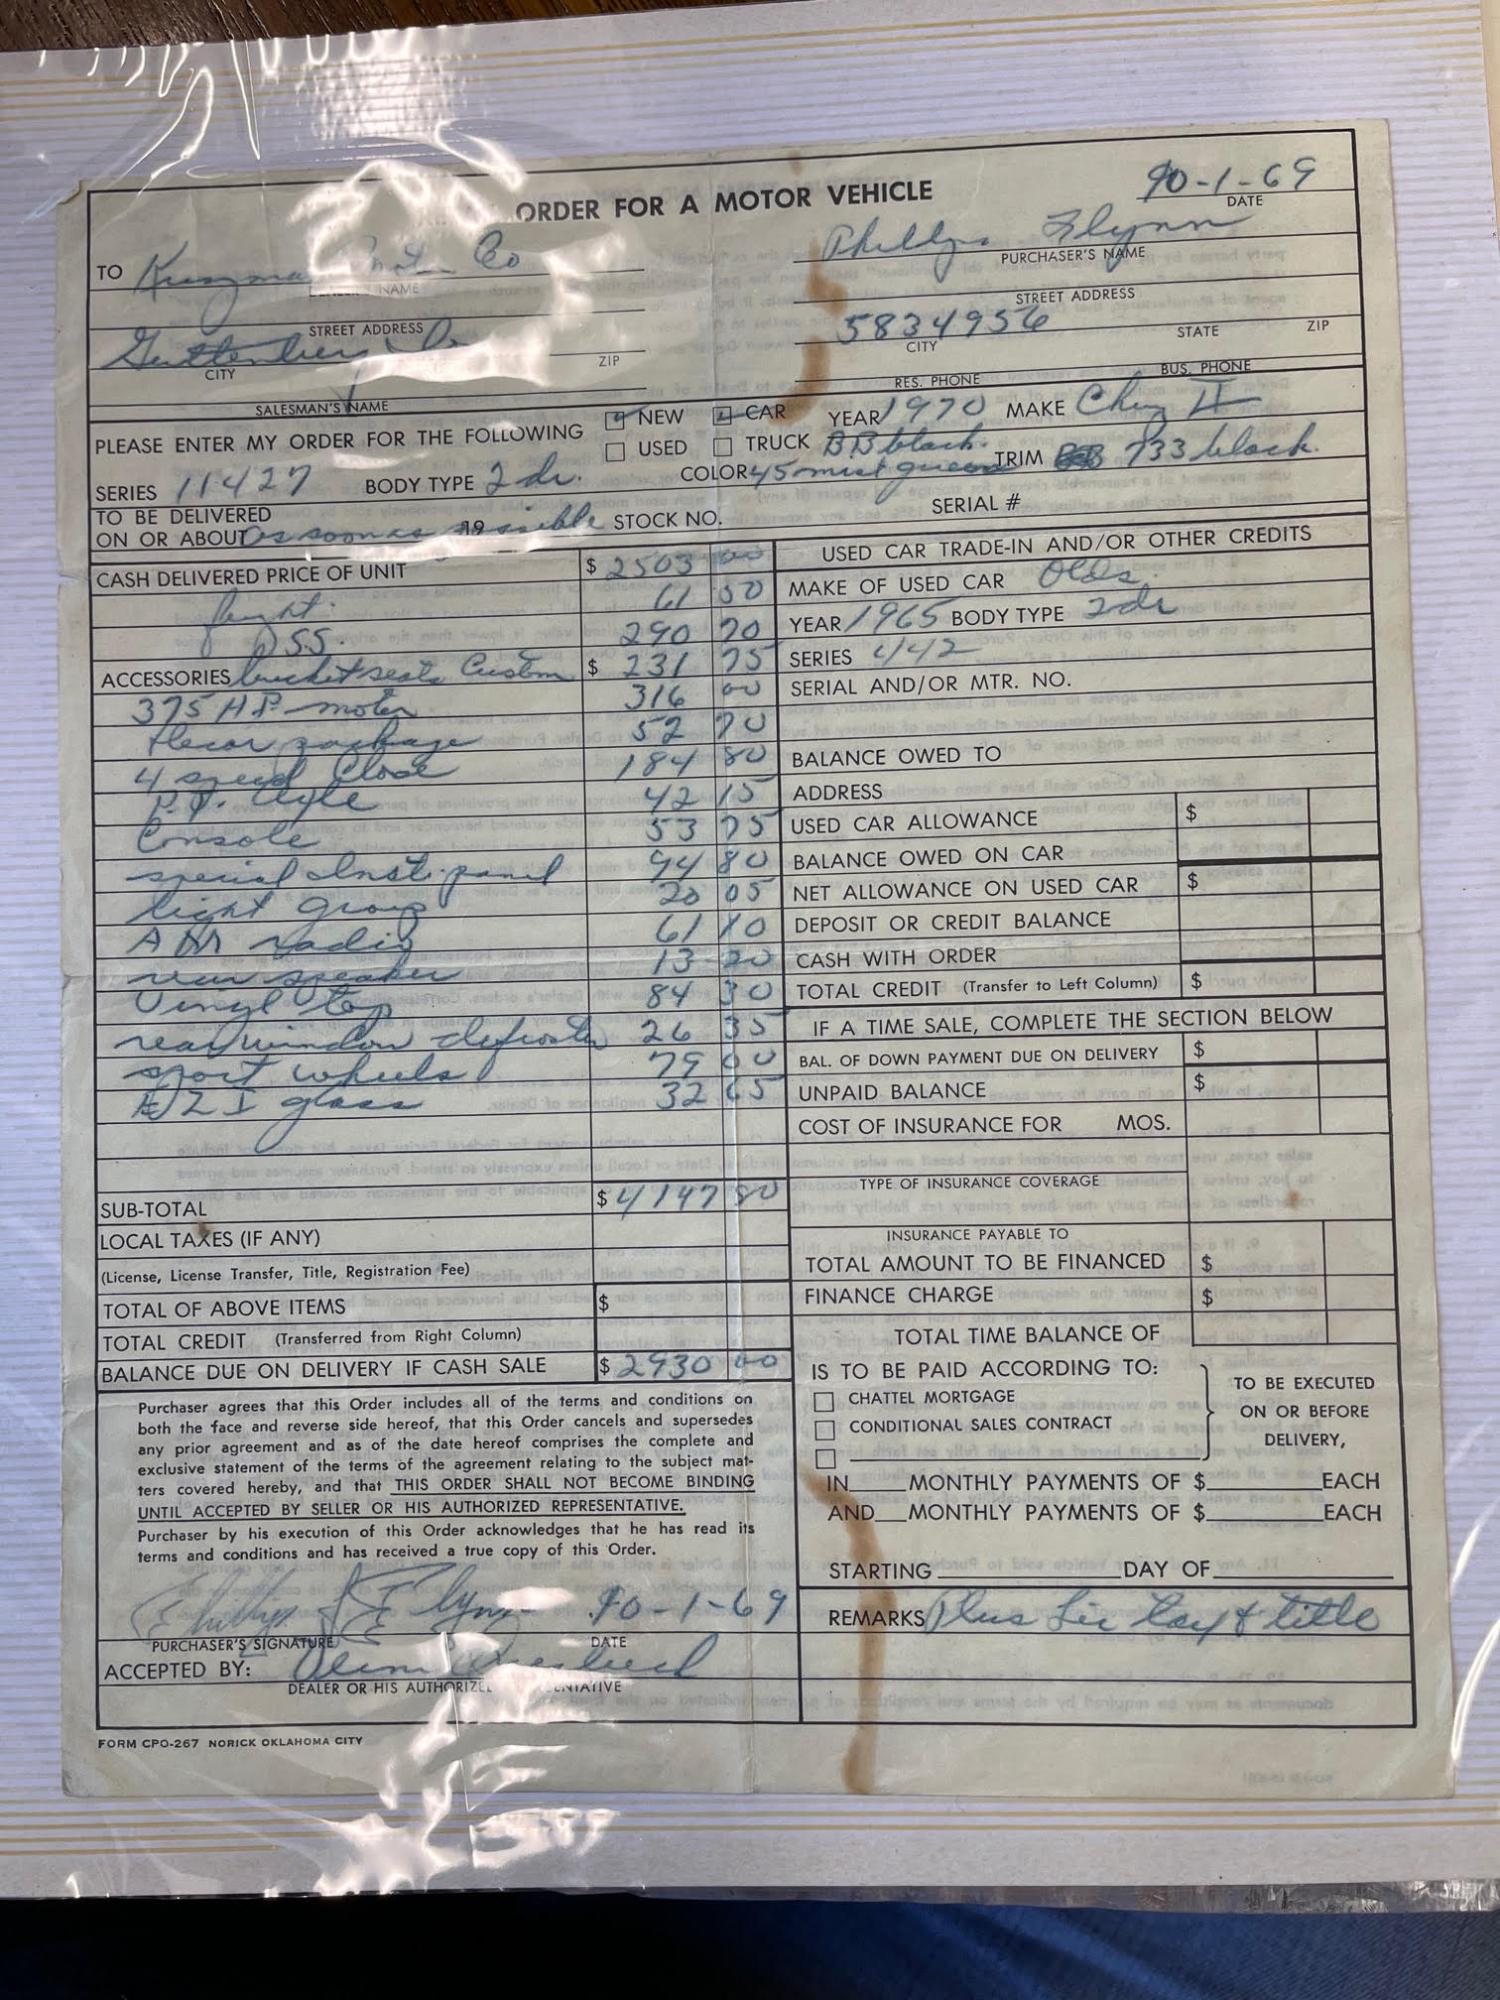 ORDER FOR A MOTOR VEHICLE
10-1-69
DATE
TO Co
NAME
Phillip Flynn
PURCHASER'S NAME
STREET ADDRESS
STREET ADDRESS
Guttenberg
CITY
ZIP
5834956
CITY
STATE
ZIP
SALESMAN'S NAME
RES. PHONE
BUS. PHONE
PLEASE ENTER MY ORDER FOR THE FOLLOWING
NEW CAR YEAR 1970 MAKE Chevy II
USED TRUCK BB black
SERIES 11427 BODY TYPE 2 dr. COLOR 45 mist green TRIM 733 black.
TO BE DELIVERED
ON OR ABOUT as soon as possible 19 STOCK NO. SERIAL #
CASH DELIVERED PRICE OF UNIT $ 2503 00
61 50
SS. 290 70
ACCESSORIES bucket seats Custom $ 231 75
375 HP motor 316 00
decor package 52 70
4 speed close 184 80
P.T. Axle 42 15
Console 53 75
special Inst. panel 94 80
light group 20 05
AM radio 61 10
rear speaker 13 20
Vinyl top 84 30
rear window defroster 26 35
sport wheels 79 00
EZI glass 32 65
SUB-TOTAL $ 4147 80
LOCAL TAXES (IF ANY)
(License, License Transfer, Title, Registration Fee)
TOTAL OF ABOVE ITEMS $
TOTAL CREDIT (Transferred from Right Column)
BALANCE DUE ON DELIVERY IF CASH SALE $ 2930 00
Purchaser agrees that this Order includes all of the terms and conditions on
both the face and reverse side hereof, that this Order cancels and supersedes
any prior agreement and as of the date hereof comprises the complete and
exclusive statement of the terms of the agreement relating to the subject mat-
ters covered hereby, and that THIS ORDER SHALL NOT BECOME BINDING
UNTIL ACCEPTED BY SELLER OR HIS AUTHORIZED REPRESENTATIVE.
Purchaser by his execution of this Order acknowledges that he has read its
terms and conditions and has received a true copy of this Order.
Phillip Flynn 10-1-69
PURCHASER'S SIGNATURE DATE
ACCEPTED BY:
DEALER OR HIS AUTHORIZED
FORM CPO-267 NORICK OKLAHOMA CITY
USED CAR TRADE-IN AND/OR OTHER CREDITS
MAKE OF USED CAR Olds.
YEAR 1965 BODY TYPE 2 dr
SERIES 442
SERIAL AND/OR MTR. NO.
BALANCE OWED TO
ADDRESS
USED CAR ALLOWANCE $
BALANCE OWED ON CAR
NET ALLOWANCE ON USED CAR $
DEPOSIT OR CREDIT BALANCE
CASH WITH ORDER
TOTAL CREDIT (Transfer to Left Column) $
IF A TIME SALE, COMPLETE THE SECTION BELOW
BAL. OF DOWN PAYMENT DUE ON DELIVERY $
UNPAID BALANCE $
COST OF INSURANCE FOR MOS.
TYPE OF INSURANCE COVERAGE
INSURANCE PAYABLE TO
TOTAL AMOUNT TO BE FINANCED $
FINANCE CHARGE $
TOTAL TIME BALANCE OF
IS TO BE PAID ACCORDING TO:
CHATTEL MORTGAGE
CONDITIONAL SALES CONTRACT
TO BE EXECUTED
ON OR BEFORE
DELIVERY,
IN____MONTHLY PAYMENTS OF $________EACH
AND___MONTHLY PAYMENTS OF $________EACH
STARTING____________DAY OF____________
REMARKS Plus Lic tax & title